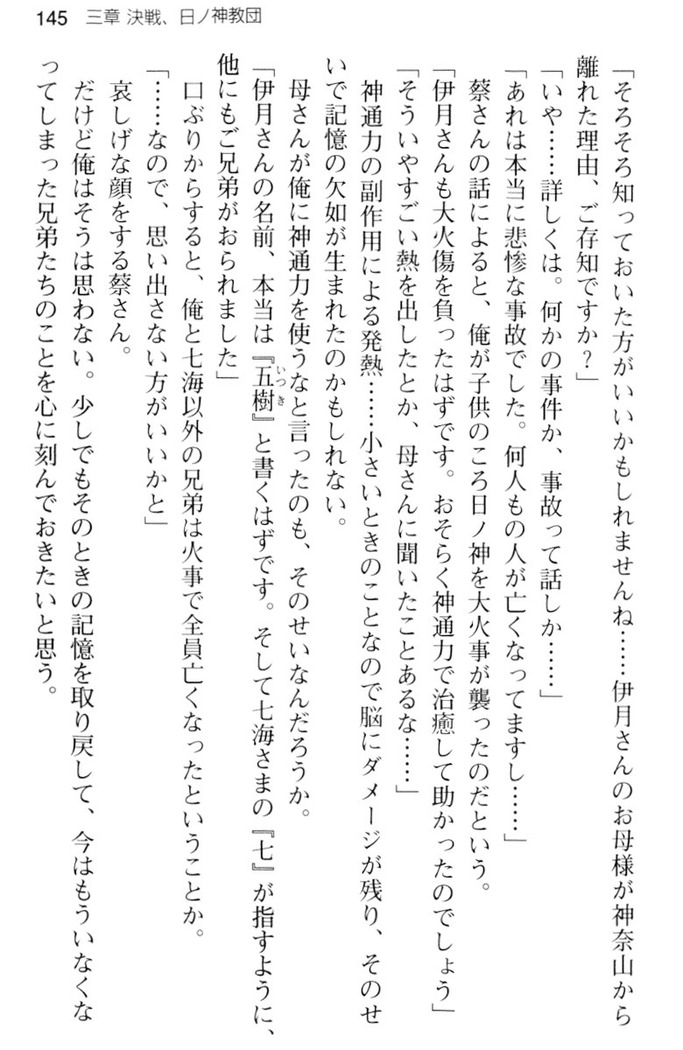 145 三章 決戦、日ノ神教団
「そろそろ知っておいた方がいいかもしれませんね……伊月さんのお母様が神奈山から
離れた理由、ご存知ですか？」
「いや……詳しくは。何かの事件か、事故って話しか……」
「あれは本当に悲惨な事故でした。何人もの人が亡くなってますし……」
蔡さんの話によると、俺が子供のころ日ノ神を大火事が襲ったのだという。
「伊月さんも大火傷を負ったはずです。おそらく神通力で治癒して助かったのでしょう」
「そういやすごい熱を出したとか、母さんに聞いたことあるな……」
神通力の副作用による発熱……小さいときのことなので脳にダメージが残り、そのせ
いで記憶の欠如が生まれたのかもしれない。
母さんが俺に神通力を使うなと言ったのも、そのせいなんだろうか。
「伊月さんの名前、本当は『五樹』と書くはずです。そして七海さまの『七』が指すように、
いつき
他にもご兄弟がおられました」
口ぶりからすると、俺と七海以外の兄弟は火事で全員亡くなったということか。
「……なので、思い出さない方がいいかと」
哀しげな顔をする蔡さん。
だけど俺はそうは思わない。少しでもそのときの記憶を取り戻して、今はもういなくな
ってしまった兄弟たちのことを心に刻んでおきたいと思う。